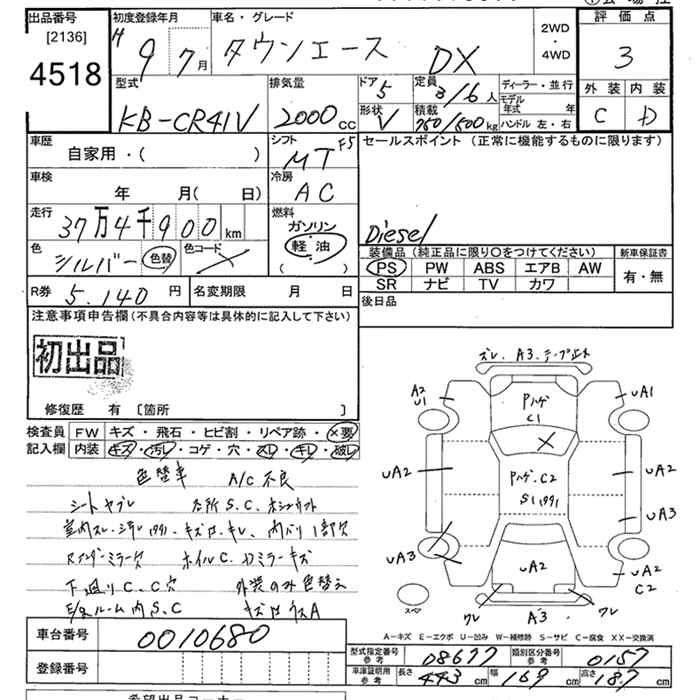 出品番号 初度登録年月 車名・グレード 評価点
[2136] H 9年 7月 タウンエース DX 2WD・4WD 3
4518
型式 排気量 ドア 定員 ディーラー・並行 外装 内装
KB-CR41V 2000cc 5 3/6人 モデル年式 年 C D
形状 V 積載 750/500kg ハンドル 左・右
車歴 シフト セールスポイント(正常に機能するものに限ります)
自家用・( ) MT F5
車検 冷房
年 月( 日) AC
走行 燃料
37万4千900km ガソリン Diesel
色 色コード 軽油 装備品(純正品に限り○をつけてください) 新車保証書
シルバー 色替 ( ) PS PW ABS エアB AW 有・無
R券 5.140円 名変期限 月 日 SR ナビ TV カワ
後日品
注意事項申告欄(不具合内容等は具体的に記入して下さい)
初出品
修復歴 有 [箇所 ]
検査員 FW キズ・飛石・ヒビ割・リペア跡・×要
記入欄 内装 キズ・汚レ・コゲ・穴・スレ・キレ・破レ
色替車 A/C不良
シートヤブレ
下廻りC、C穴 外装のみ色替え
E/gルーム内S、C
ズレ、A3、テープ止メ
A2
U1
Pハゲ
C1
UA1
UA2
Pハゲ、C2
UA2
UA3
UA3
UA2
UA2
C2
ワレ A3 ワレ
スペア
A-キズ E-エクボ U-凹み W-補修跡 S-サビ C-腐食 XX-交換済
車台番号 0010680
登録番号
型式指定番号 参考 08677 類別区分番号 参考 0157
車庫証明用 参考 長さ 443cm 幅 169cm 高さ 187cm
希望出品コーナー